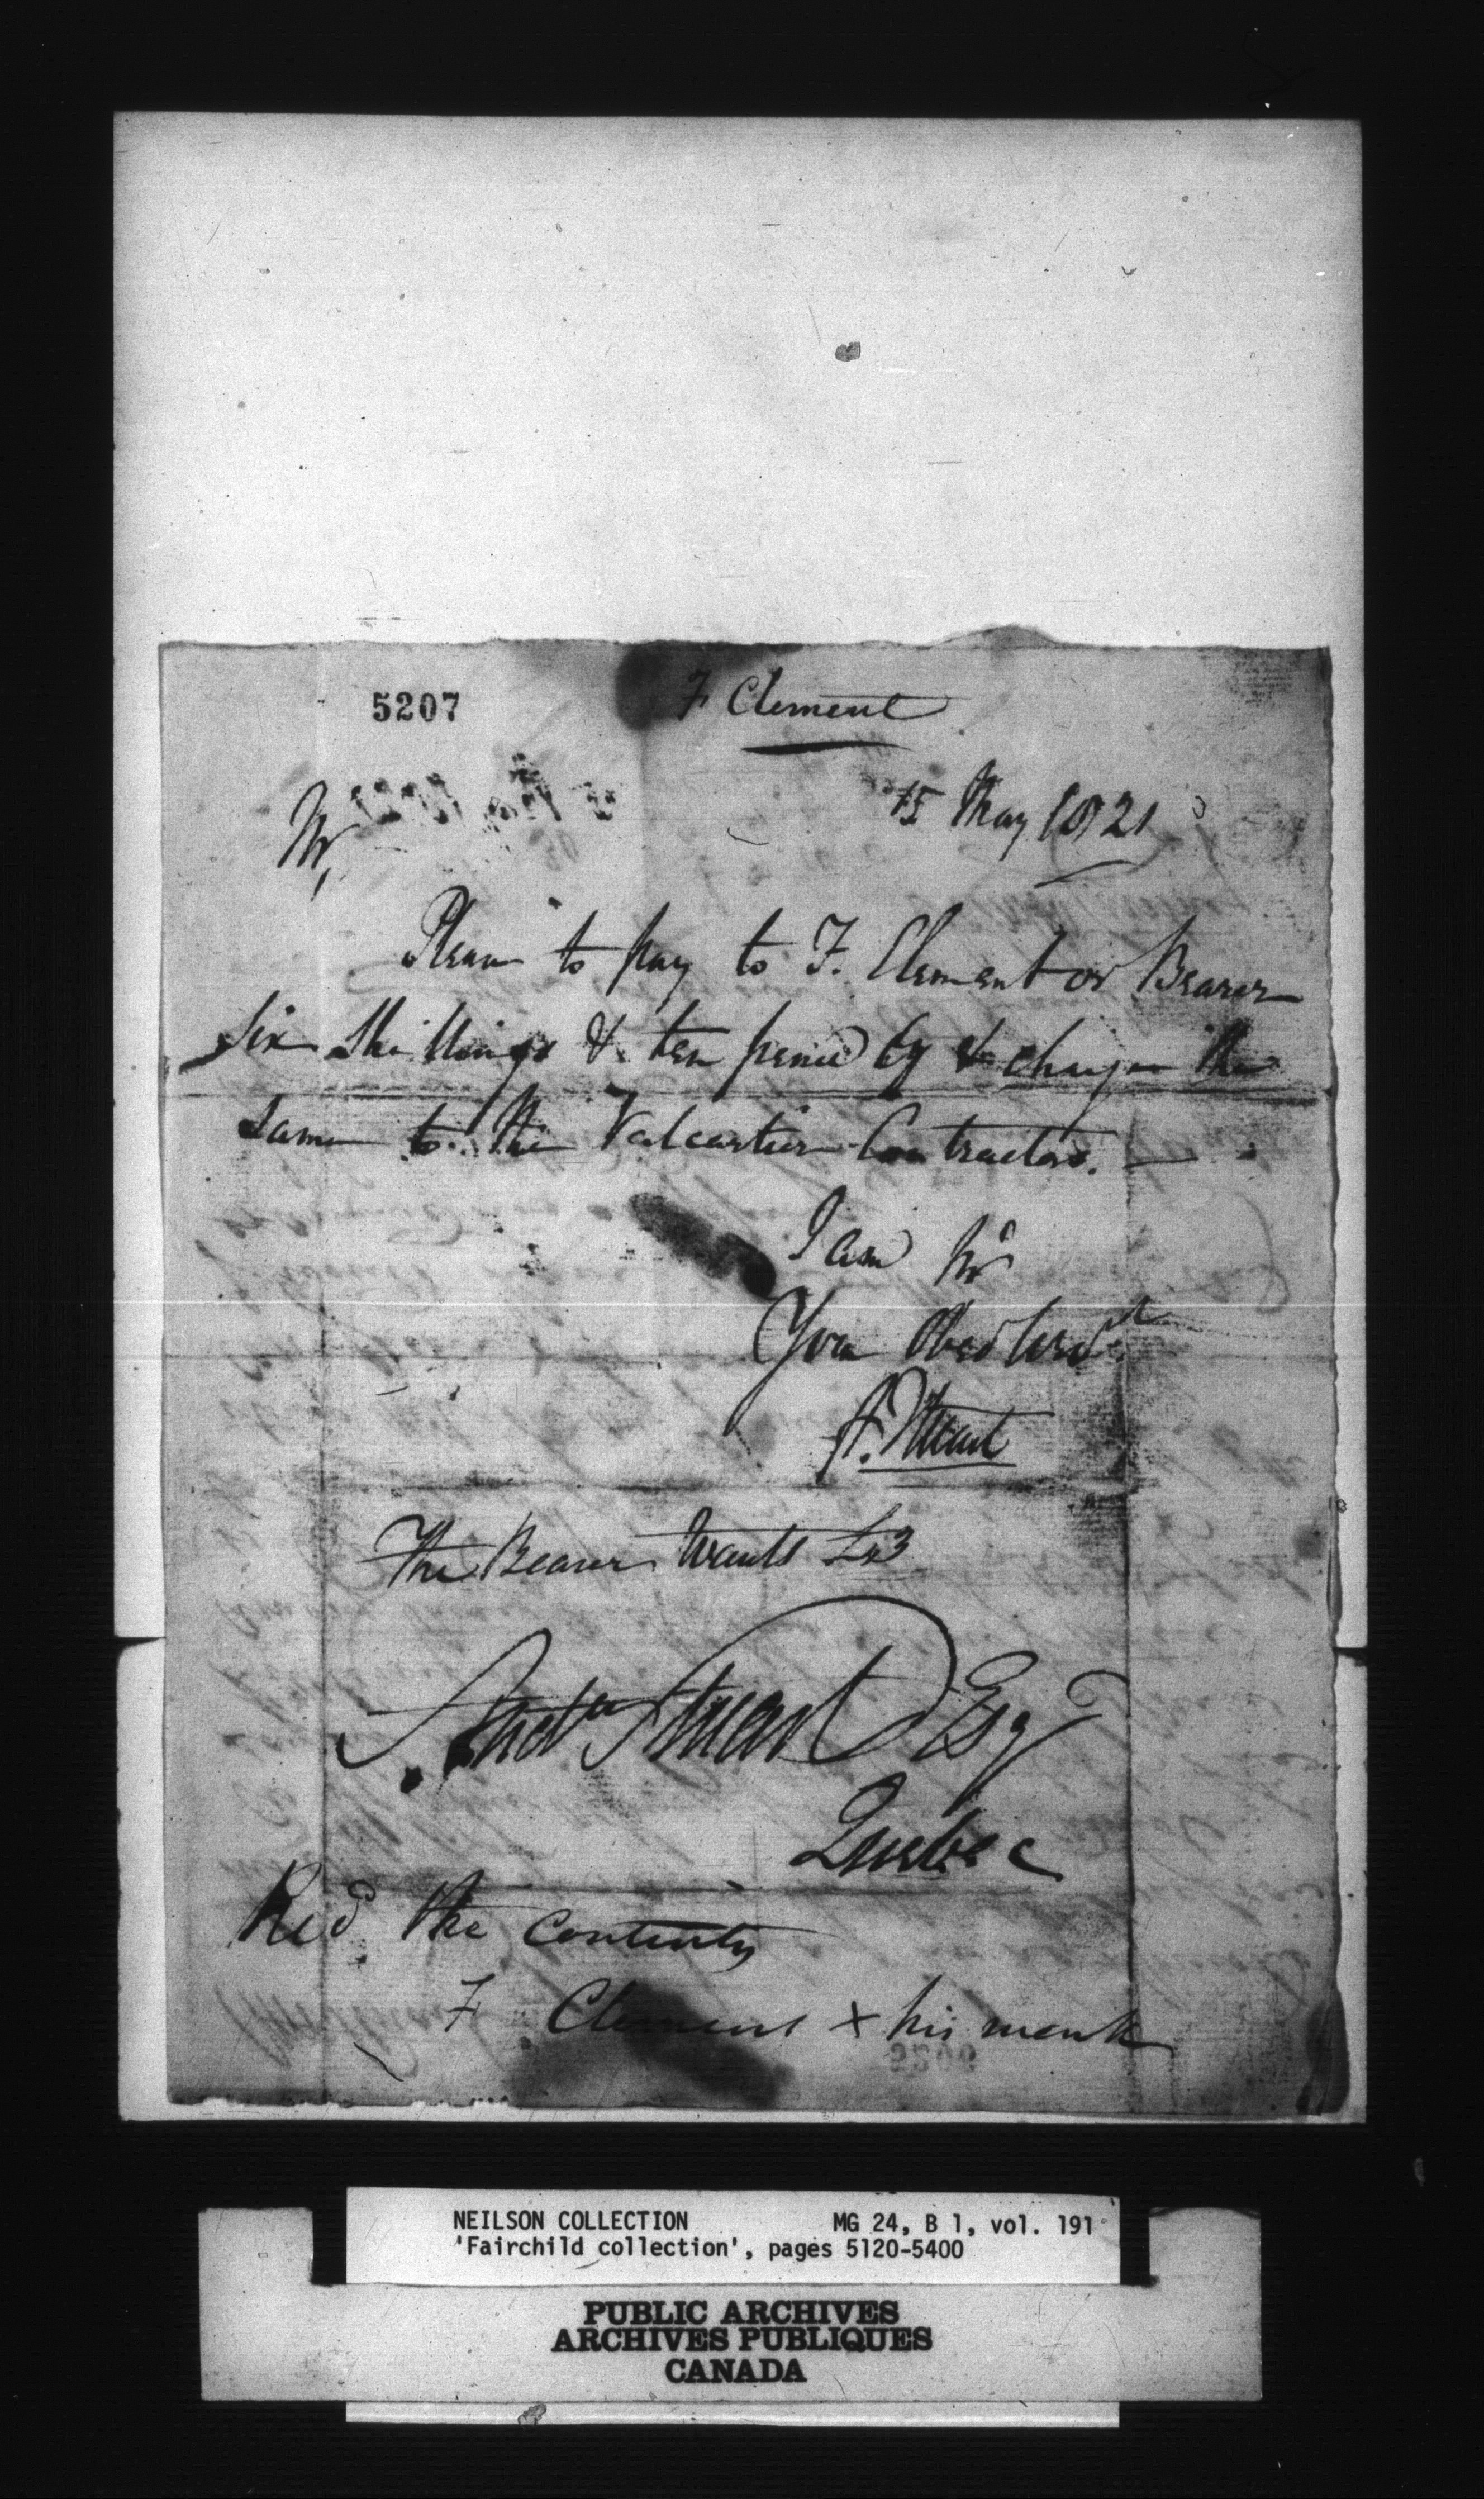 5207
F Clement
15 May 1821
Sir,
Please to pay to F. Clement or Bearer
six shillings & ten pence Cy & charge the
same to the Valcartier Contractors.
I am Sir
Your Obed Servt
A. Stuart
The Bearer Wants
Andw Stuart Esqr
Quebec
Recd the contents
F Clement x his mark
NEILSON COLLECTION MG 24, B 1, vol. 191
'Fairchild collection', pages 5120-5400
PUBLIC ARCHIVES
ARCHIVES PUBLIQUES
CANADA